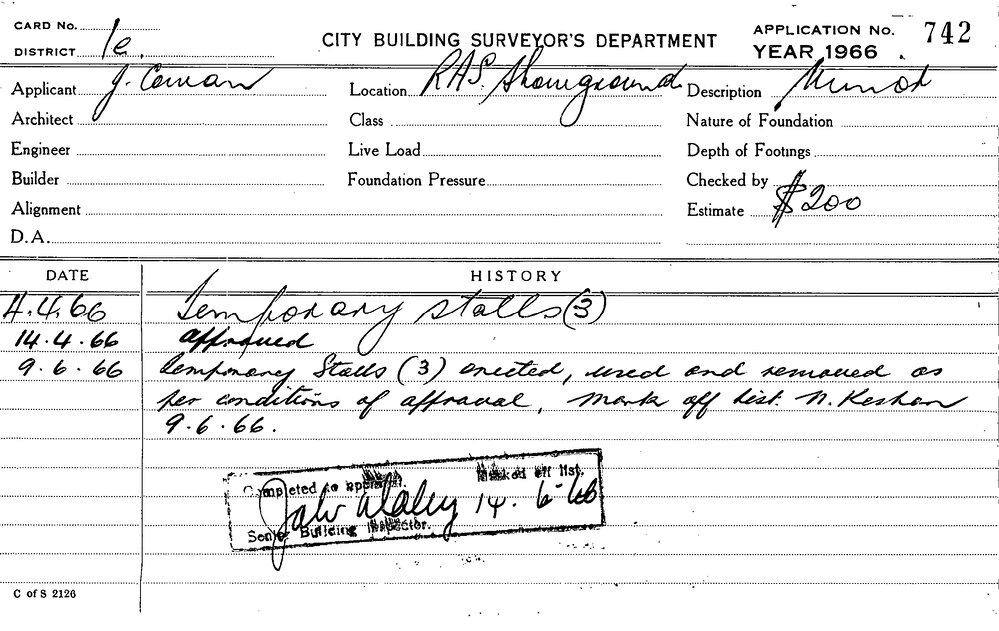 CARD No.
DISTRICT 1e.
CITY BUILDING SURVEYOR'S DEPARTMENT
APPLICATION No. 742
YEAR 1966
Applicant J. Cowan
Location R.A.S. Showground
Description Minor
Architect
Class
Nature of Foundation
Engineer
Live Load
Depth of Footings
Builder
Foundation Pressure
Checked by
Alignment
Estimate $200
D.A.
DATE HISTORY
4.4.66 Temporary stalls (3)
14.4.66 approved
9.6.66 Temporary Stalls (3) erected, used and removed as
per conditions of approval. Mark off list. N.
9.6.66.
Completed to approval. Marked off list.
14.6.66
Senior Building Inspector.
C of S 2126